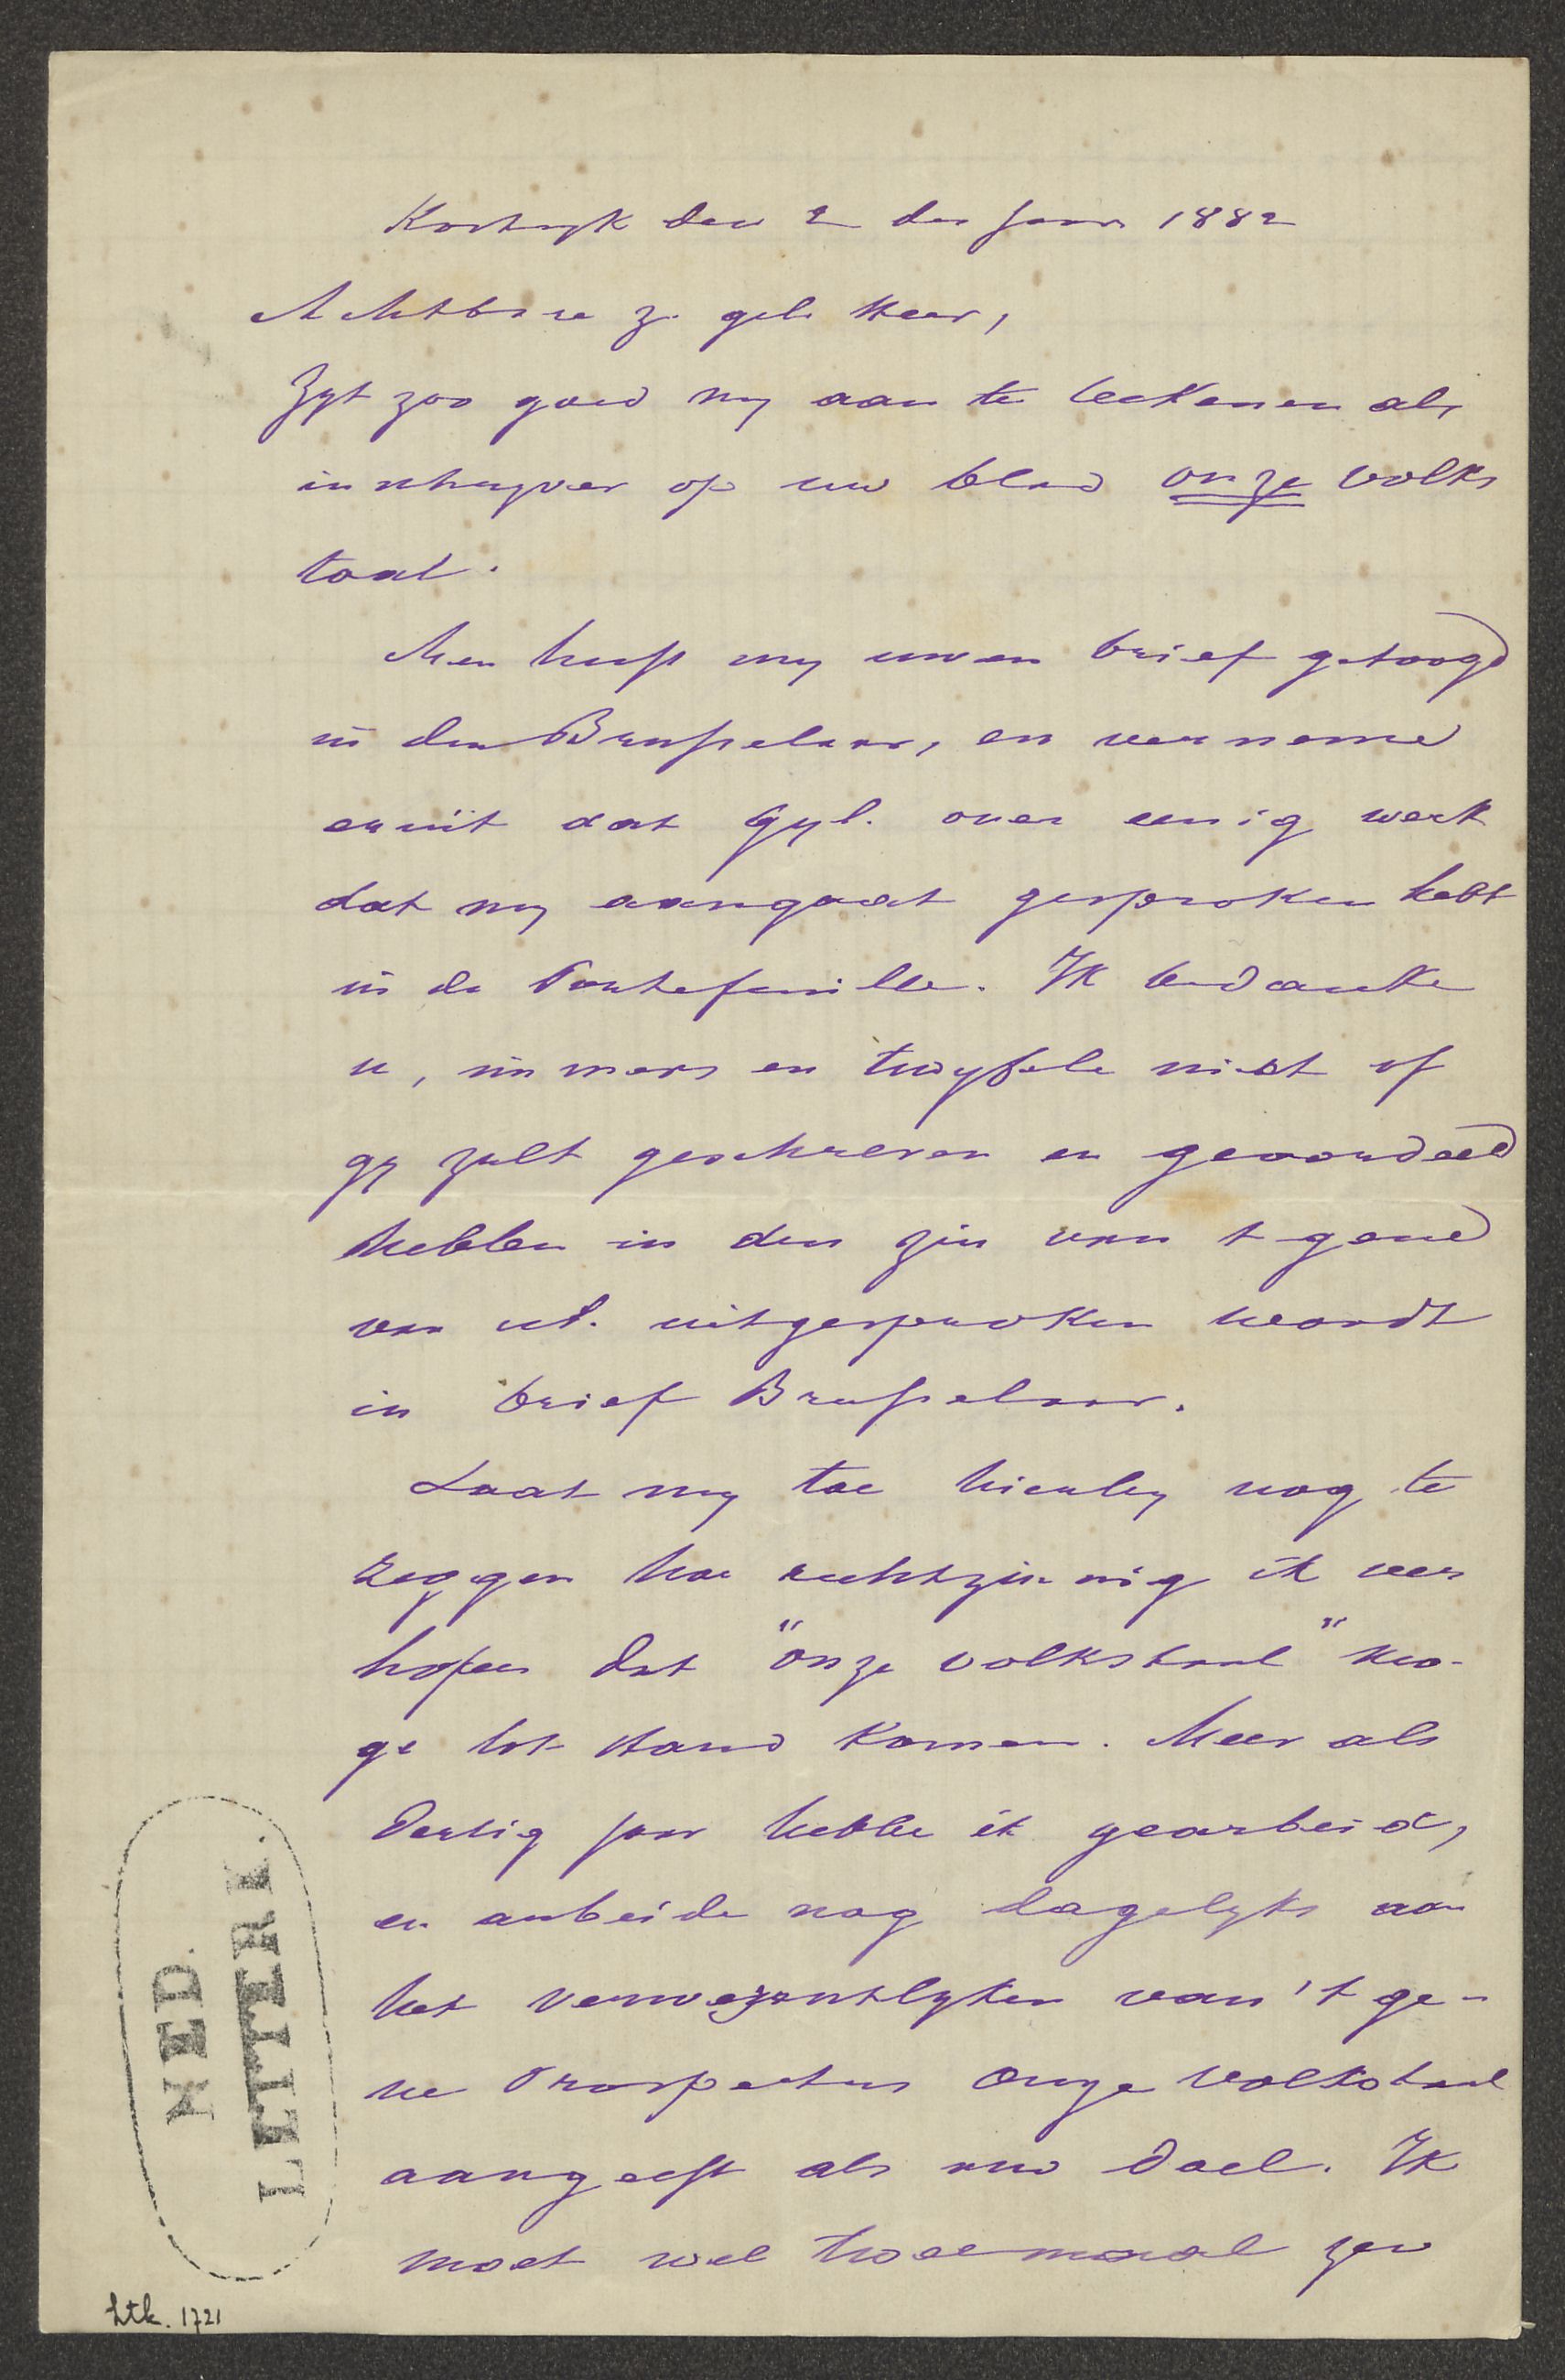 Kortryk den 2 der Janr 1882
Achtbare z. gel. Heer,
Zyt zoo goed my aan te teekenen als
inschryver op uw blad onze volks
taal.
Men heeft my uwen brief getoogd
in den Brusselaar, en verneme
eruit dat Gyl. over eenig werk
dat my aangaat gesproken hebt
in de Portefeuille. Ik bedanke
u, immers en twyfele niet of
gy zult geschreven en geoordeeld
hebben in den zin van t gene
van ul. uitgesproken wordt
in brief Brusselaar.
Laat my toe hierby nog te
zeggen hoe rechtzinnig ik ver
hopen dat "onze volkstaal" mo-
ge tot stand komen. Meer als
dertig jaar hebbe ik gearbeid,
en arbeide nog dagelyks aan
het verwezentlyken van 't ge-
ne Prospectus Onze Volkstaal
aangeeft als uw doel. Ik
moet wel tweemaal zien
NED.
LETTERK.
Ltk. 1721